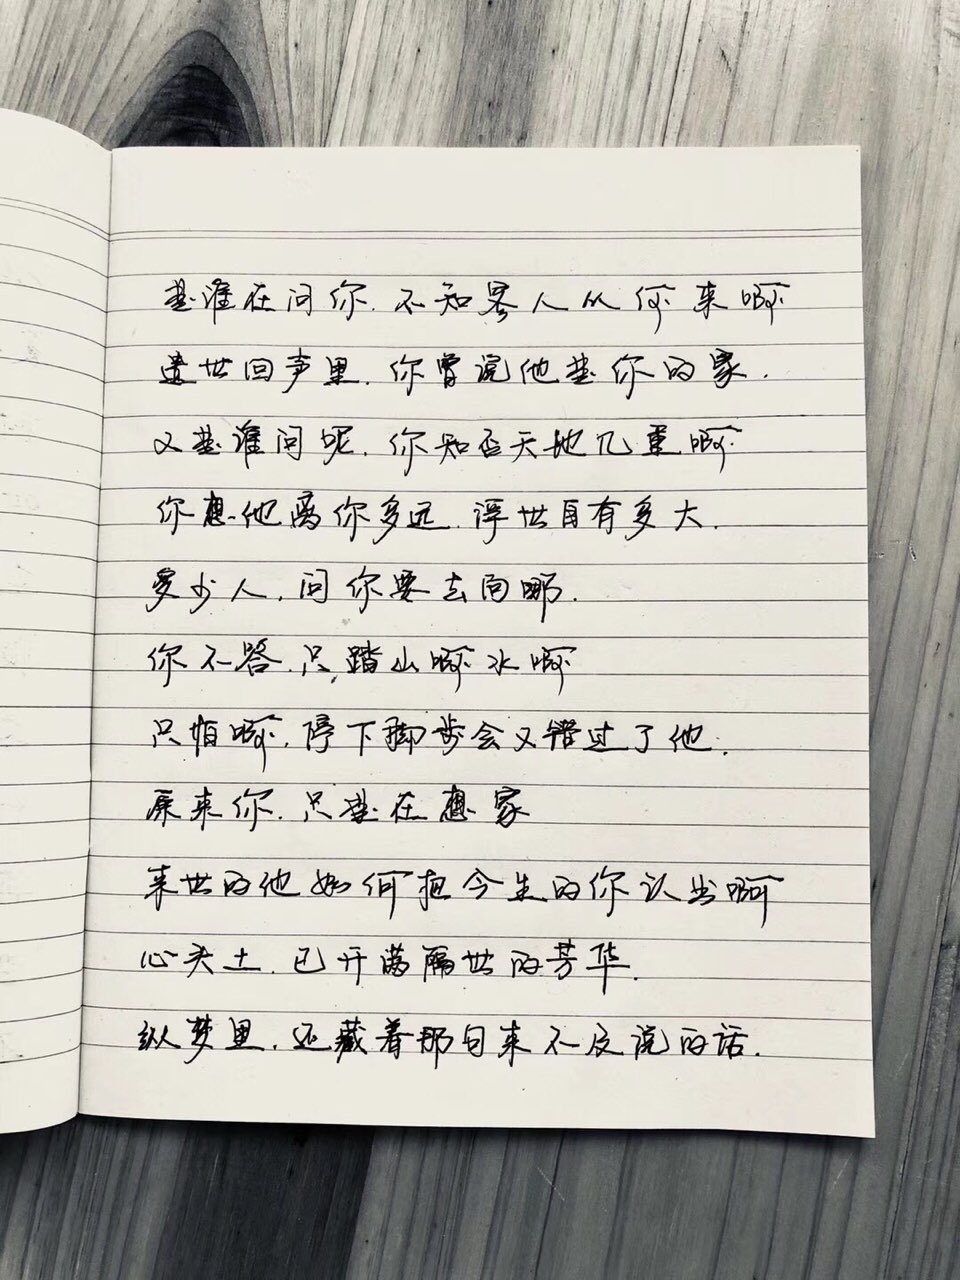 是谁在问你.不知客人从何来啊
遗世回声里.你曾说他是你的家.
又是谁问呢.你知否天地几重啊
你想他离你多远.浮世自有多大.
多少人.问你要去向哪.
你不答.只踏山啊水啊
只怕啊.停下脚步会又错过了他.
原来你.只是在想家
来世的他如何把今生的你认出啊
心头土.已开满隔世的芳华.
纵梦里.还藏着那句来不及说的话.